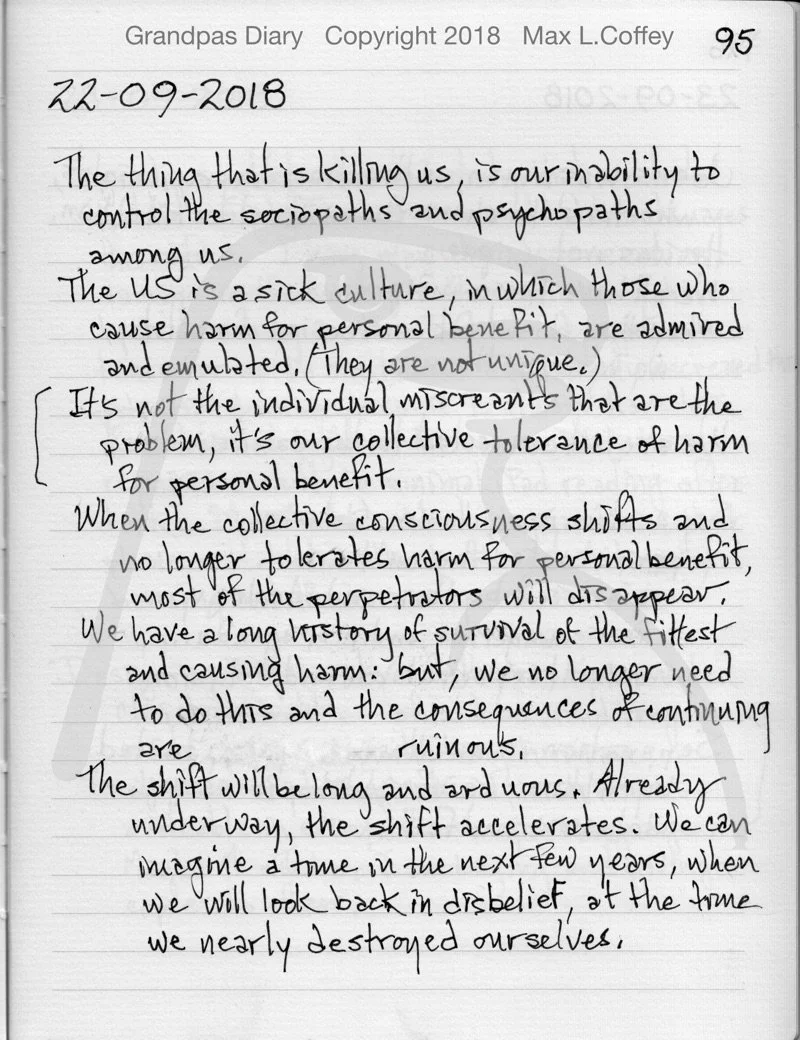 Grandpas Diary Copyright 2018 Max L.Coffey 95
22-09-2018
The thing that is killing us, is our inability to
control the sociopaths and psychopaths
among us.
The US is a sick culture, in which those who
cause harm for personal benefit, are admired
and emulated. (They are not unique.)
It's not the individual miscreants that are the
problem, it's our collective tolerance of harm
for personal benefit.
When the collective consciousness shifts and
no longer tolerates harm for personal benefit,
most of the perpetrators will disappear.
We have a long history of survival of the fittest
and causing harm: but, we no longer need
to do this and the consequences of continuing
are ruinous.
The shift will be long and arduous. Already
underway, the shift accelerates. We can
imagine a time in the next few years, when
we will look back in disbelief, at the time
we nearly destroyed ourselves.